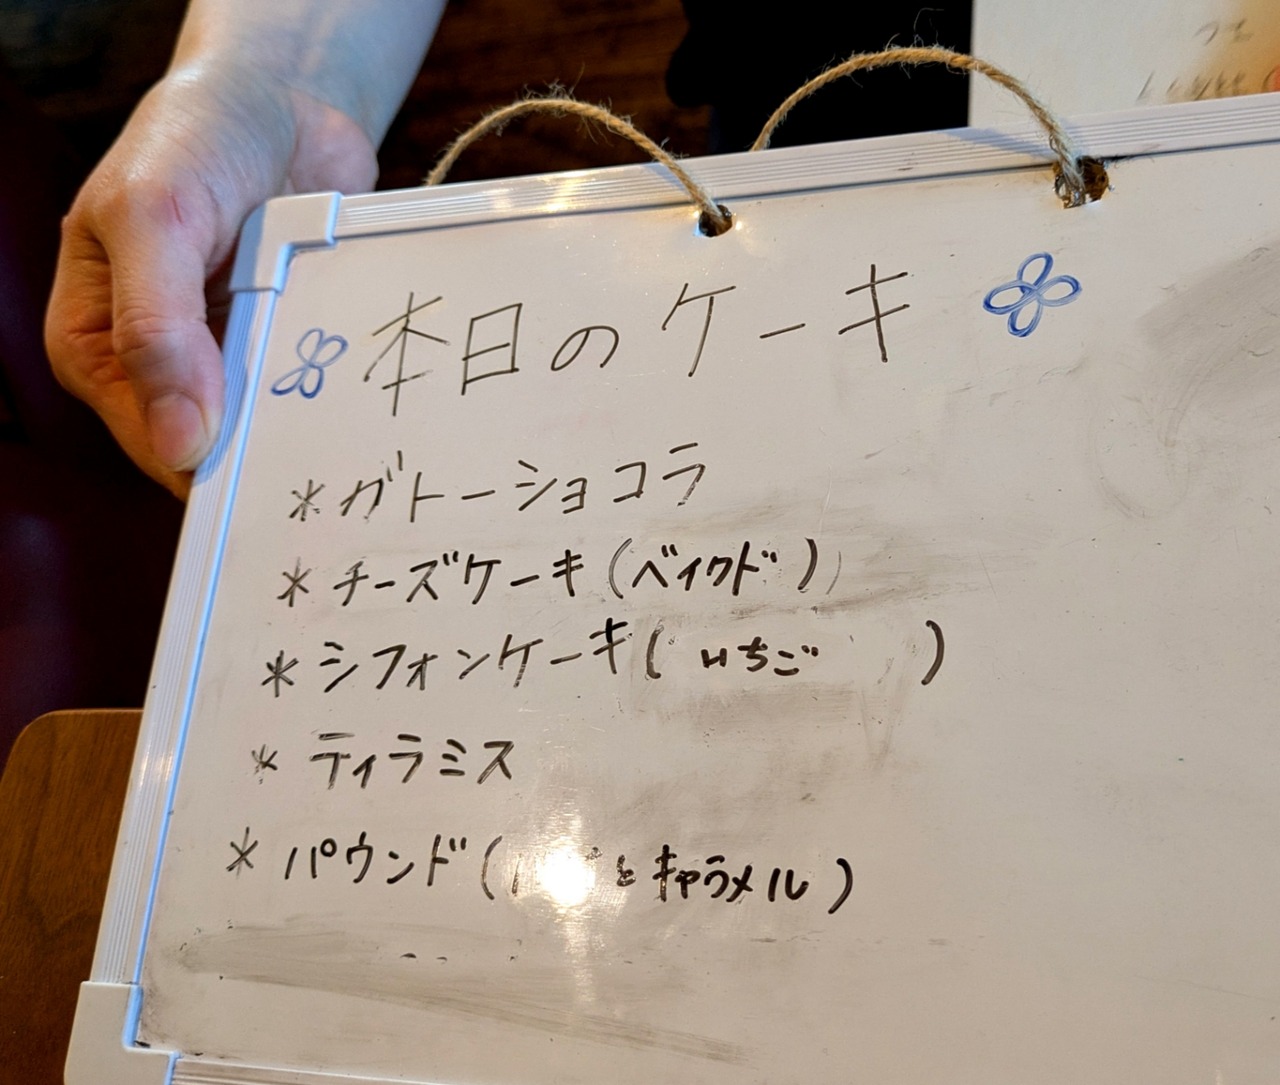 本日のケーキ
* ガトーショコラ
* チーズケーキ(ベイクド)
* シフォンケーキ(いちご)
* ティラミス
* パウンド( とキャラメル)